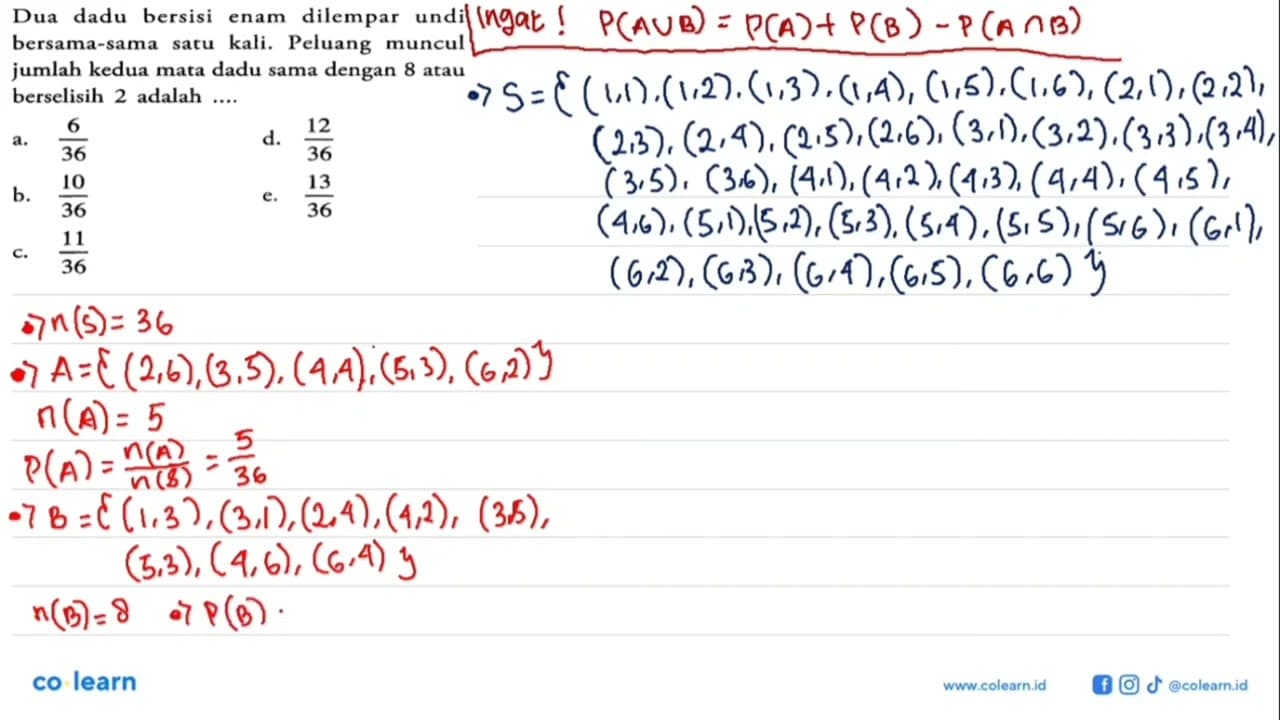 Dua dadu bersisi enam dilempar undi
bersama-sama satu kali. Peluang muncul
jumlah kedua mata dadu sama dengan 8 atau
berselisih 2 adalah ....
a. 6/36
d. 12/36
b. 10/36
e. 13/36
c. 11/36
Ingat ! P(A∪B) = P(A) + P(B) - P(A∩B)
→ S = { (1,1), (1,2), (1,3), (1,4), (1,5), (1,6), (2,1), (2,2),
(2,3), (2,4), (2,5), (2,6), (3,1), (3,2), (3,3), (3,4),
(3,5), (3,6), (4,1), (4,2), (4,3), (4,4), (4,5),
(4,6), (5,1), (5,2), (5,3), (5,4), (5,5), (5,6), (6,1),
(6,2), (6,3), (6,4), (6,5), (6,6) }
→ n(S) = 36
→ A = { (2,6), (3,5), (4,4), (5,3), (6,2) }
n(A) = 5
P(A) = n(A)/n(S) = 5/36
→ B = { (1,3), (3,1), (2,4), (4,2), (3,5),
(5,3), (4,6), (6,4) }
n(B) = 8 → P(B)
co learn
www.colearn.id @colearn.id